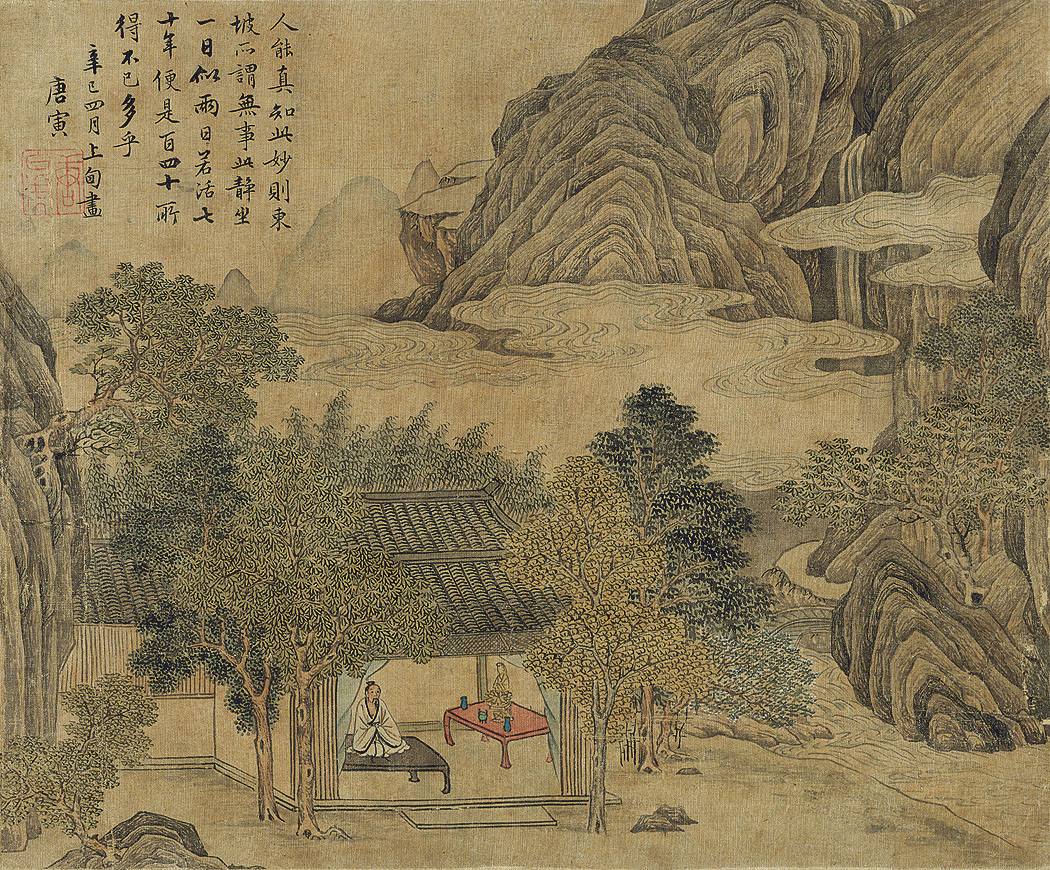 人能真知此妙則東
坡所謂無事此靜坐
一日似兩日若活七
十年便是百四十所
得不已多乎
辛巳四月上旬畫
唐寅